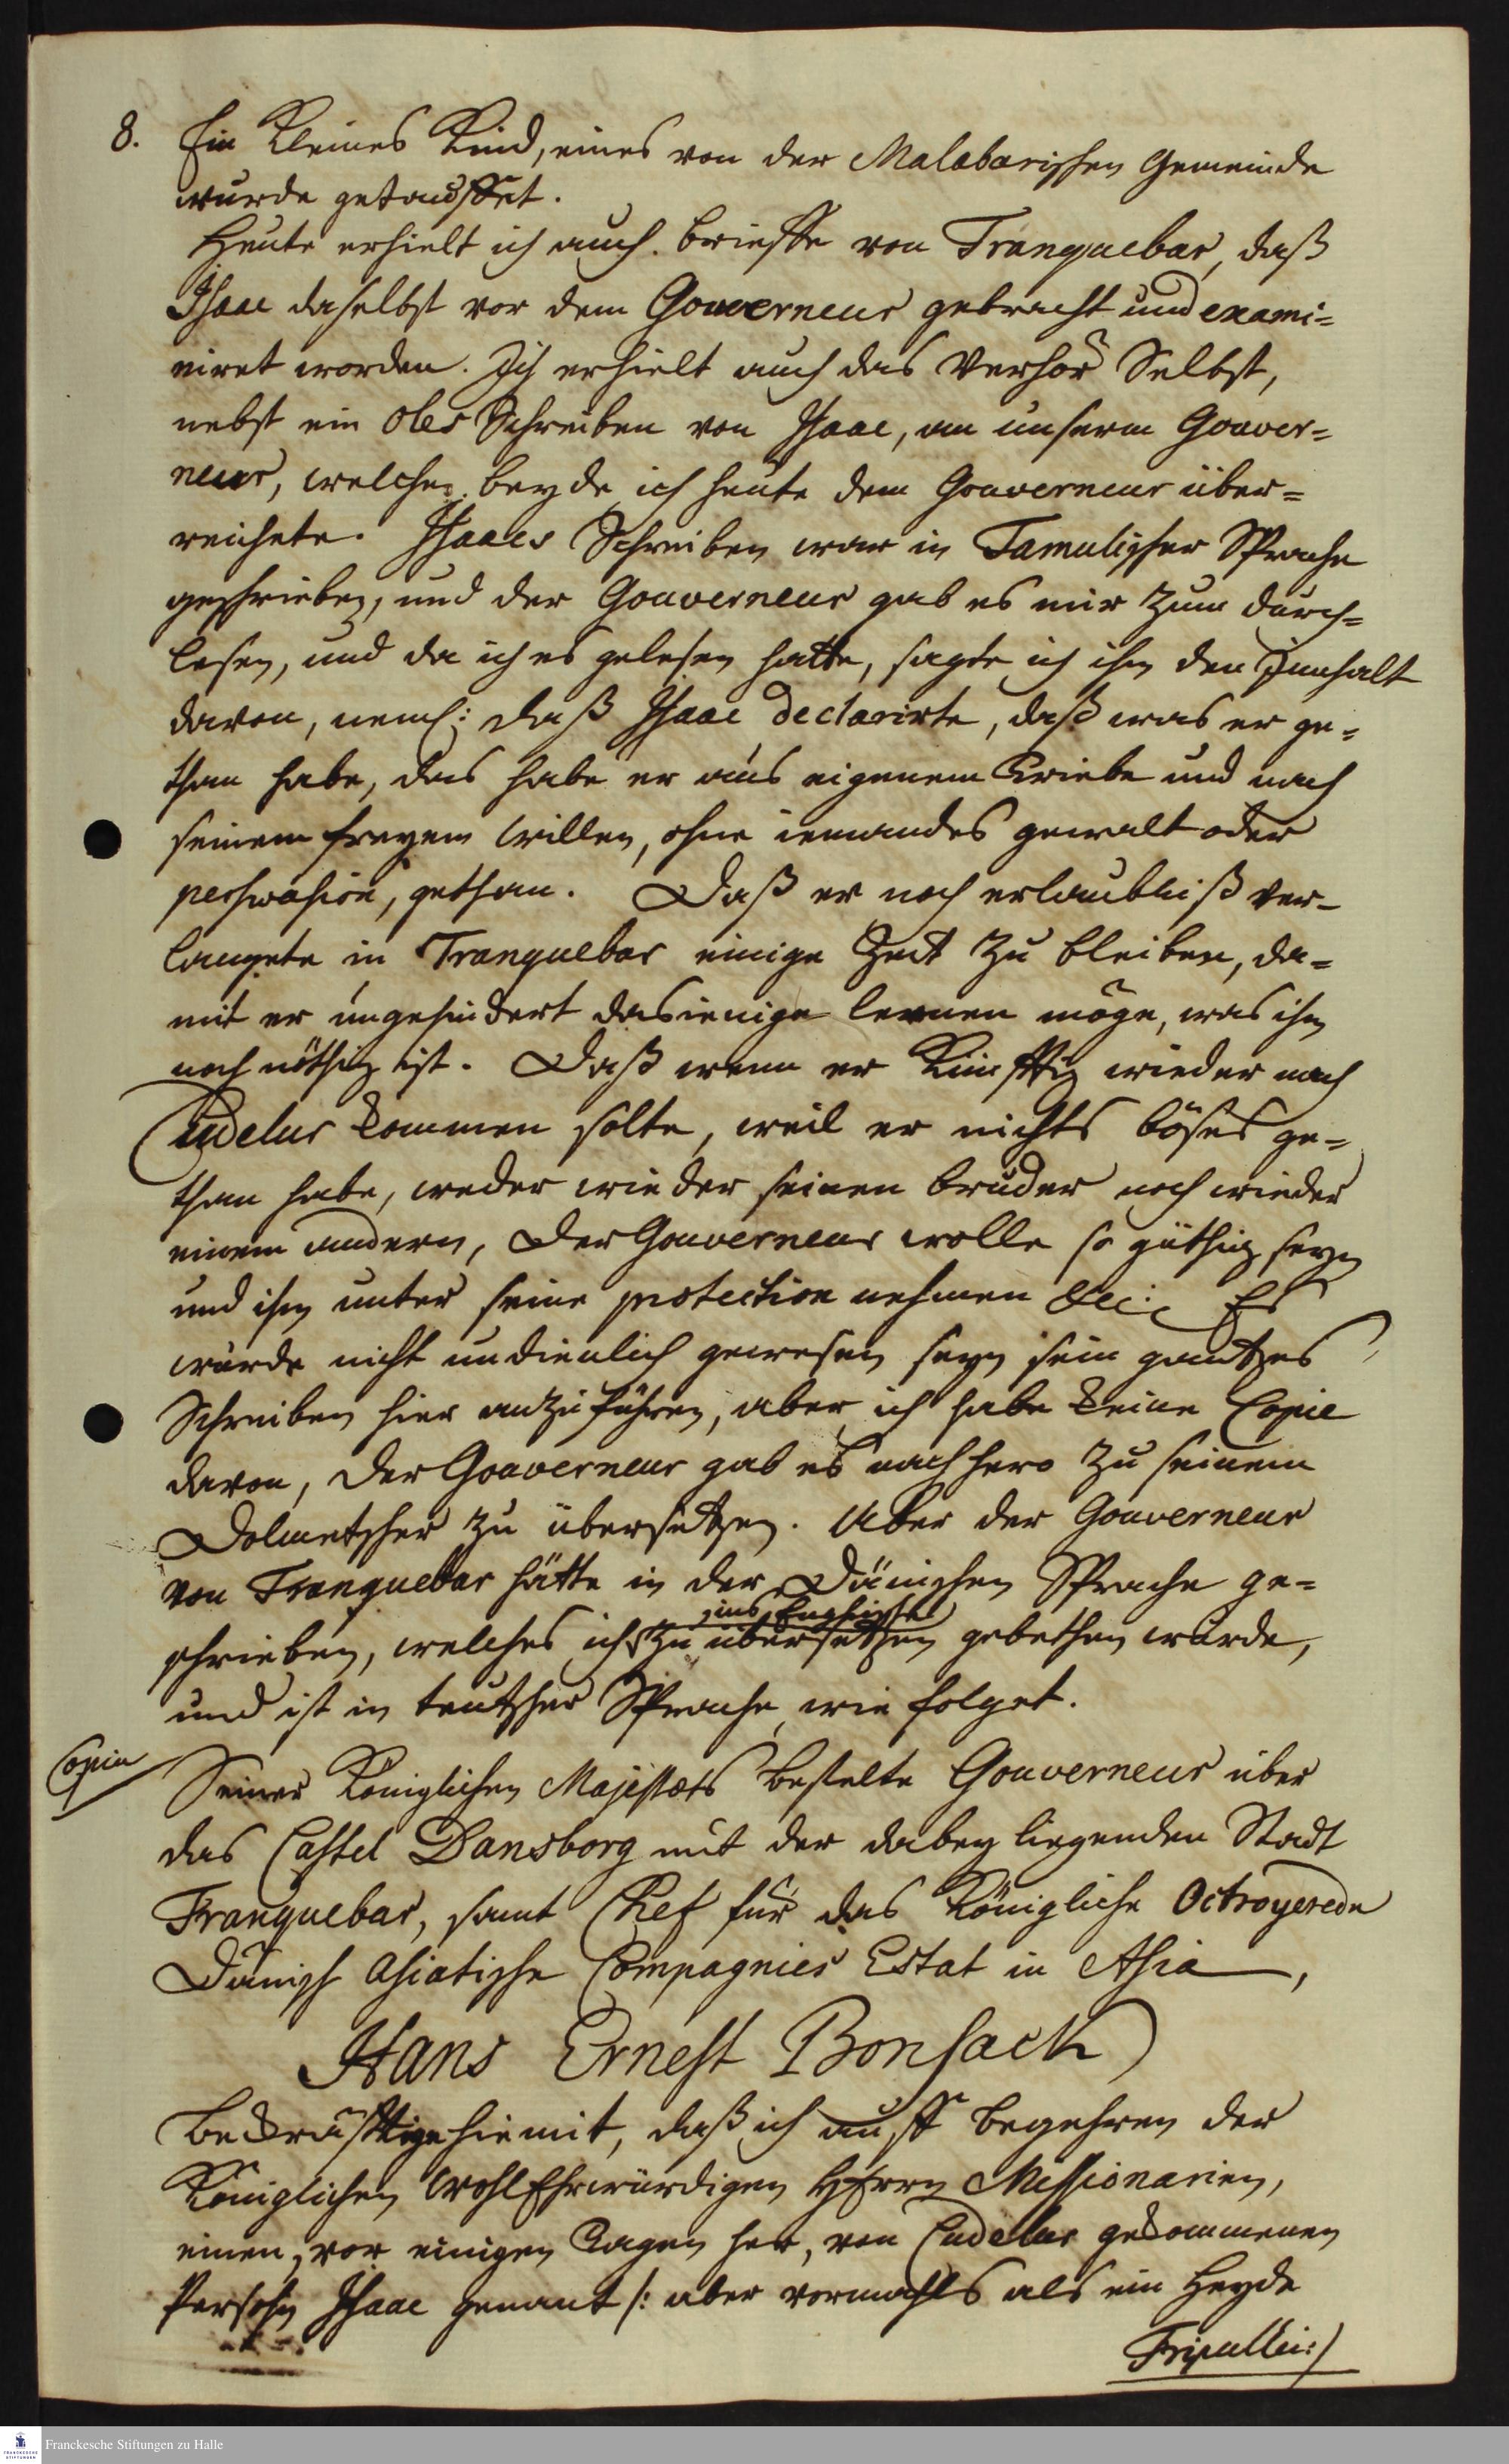 8. Ein Kleines Kind, eines von der Malabarischen Gemeinde
wurde getauffet.
Heute erhielt ich auch brieffe von Tranquebar, daß
Isaac daselbst vor dem Gouverneur gebracht und exami=
niret worden. Ich erhielt auch das Verhör Selbst,
nebst ein Oles Schreiben von Isaac, an unserm Gouver=
neur, welche beyde ich heute dem Gouverneur über=
reichete. Isaacs Schreiben war in Tamulischer Sprache
geschrieben, und der Gouverneur gab es mir zum durch=
lesen, und da ich es gelesen hatte, sagte ich ihm den Innhalt
davon, neml: daß Isaac declarirte, daß was er ge=
than habe, das habe er aus eigenem Triebe und nach
seinem freyem Willen, ohne iemandes gewalt oder
perswasion, gethan. Daß er noch erlaubniß ver-
langete in Tranquebar einige Zeit zu bleiben, da=
mit er ungehindert dasienige lernen möge, was ihm
noch nöthig ist. Daß wenn er Künfftig wieder nach
Cudelur kommen solte, weil er nichts böses ge=
than habe, weder wieder seinen bruder noch wieder
einem andern, Der Gouverneur wolle so gütig seyn
und ihm unter seine protection nehmen &c: Es
würde nicht undienlich gewesen seyn sein gantzes
Schreiben hier anzuführen, aber ich habe keine Copie
davon, der Gouverneur gab es nachhero zu seinem
Dolmetscher zu übersetzen. Aber der Gouverneur
von Tranquebar hätte in der Dänischen Sprache ge=
ins Englische
schrieben, welches ich zu übersetzen gebethen wurde,
und ist in teutscher Sprache wie folget.
Copia Seiner Königlichen Majestæts bestelte Gouverneur über
das Castel Dansborg mit der dabey liegenden Stadt
Tranquebar, samt Chef für das Königliche Octroyerede
Dänisch Asiatische Compagnies Estat in Asia,
Hans Ernest Bonsack
Bekräfftige hiemit, daß ich auff begehren der
Königlichen WohlEhrwürdigen HErrn Missionarien,
einen, vor einigen Tagen her, von Cudelur gekommenen
Persohn Isaac genant /: aber vormahls als ein Heyde
Tripullei:/
Franckesche Stiftungen zu Halle